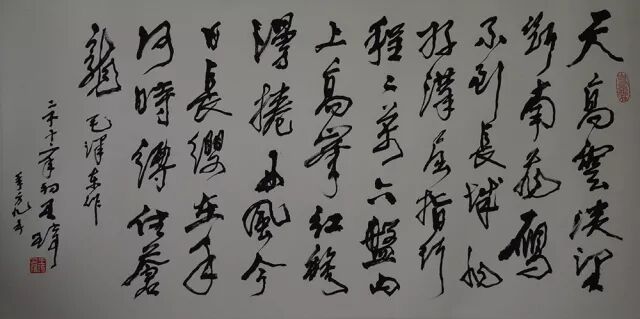 天高雲淡望
斷南飛鴈
不到長城非
好漢屈指行
程二萬六盤山
上高峯紅旗
漫捲西風今
日長纓在手
何時縛住蒼
龍 毛澤東作